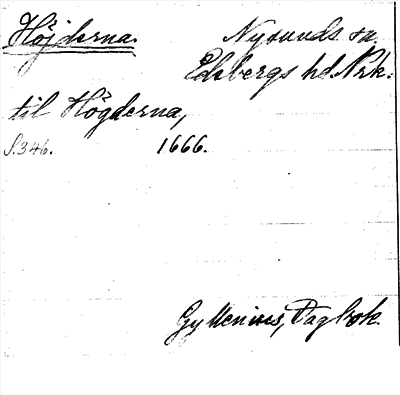 Höjderna. Nysunds sn
Edsbergs hd. Nrk.
til Högderna,
S. 346. 1666.
Gyllenius, Dagbok.